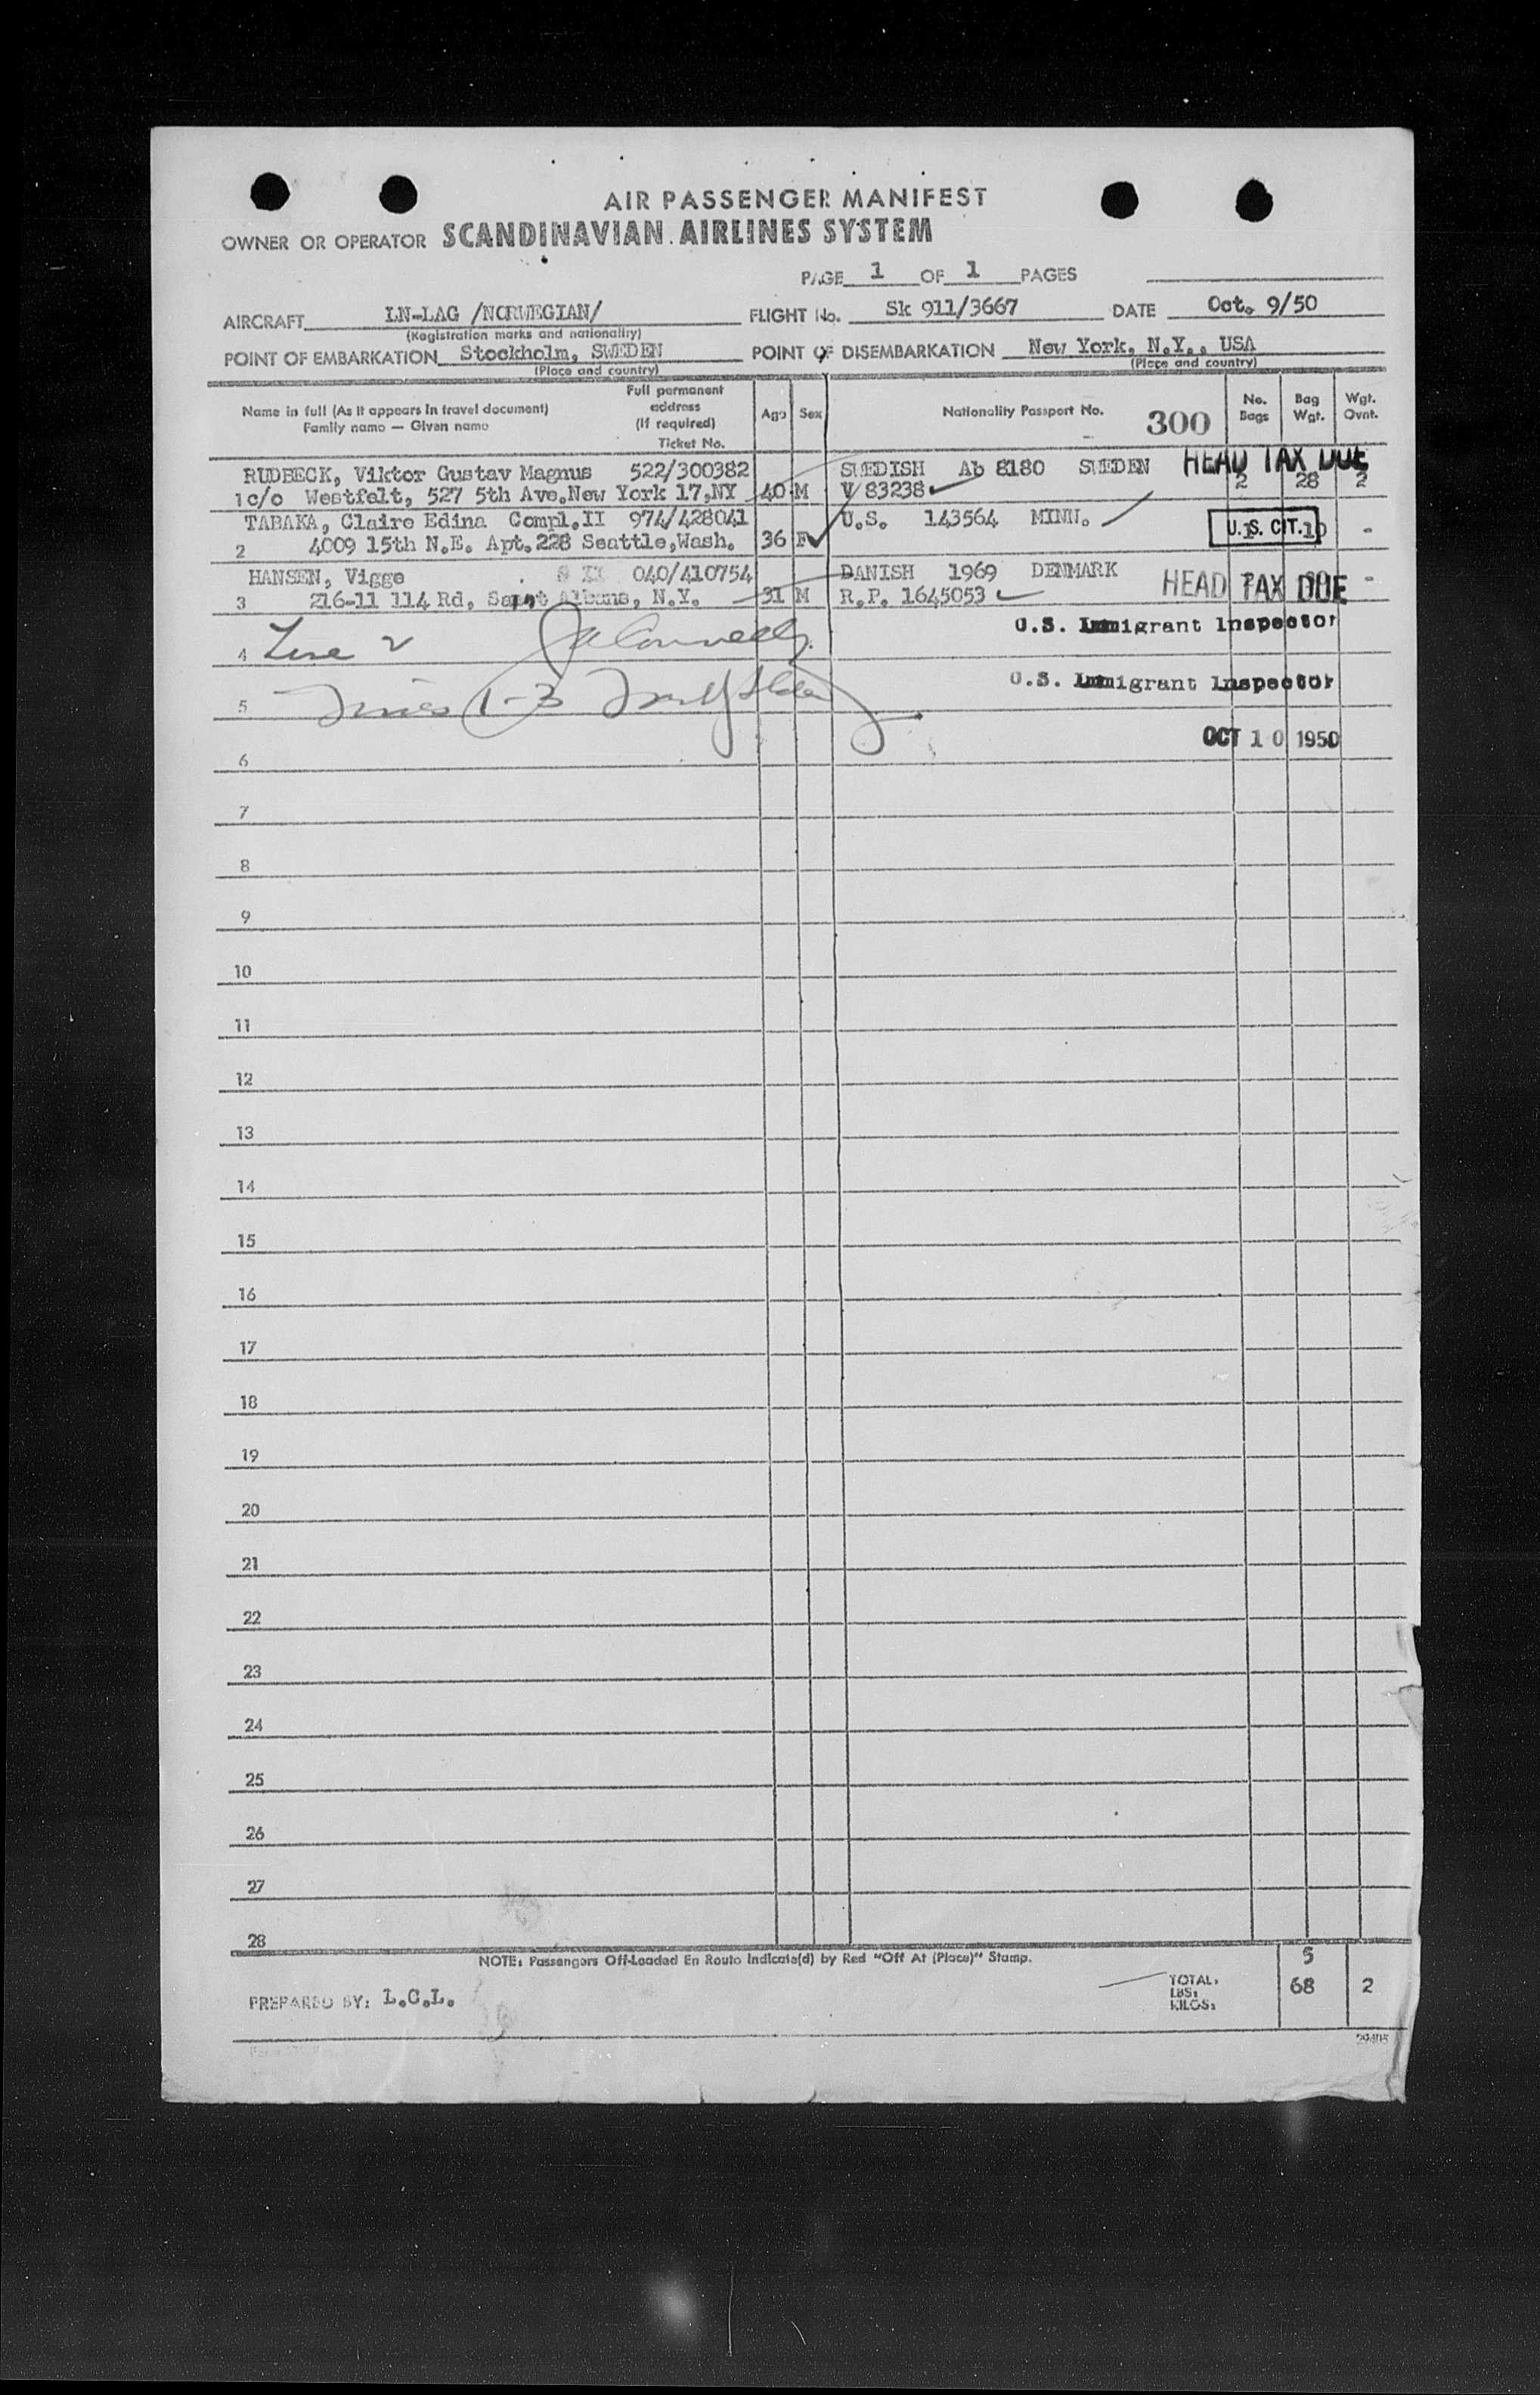 AIR PASSENGER MANIFEST
OWNER OR OPERATOR SCANDINAVIAN AIRLINES SYSTEM
PAGE 1 OF 1 PAGES
AIRCRAFT LN-LAG /NORWEGIAN/ FLIGHT No. Sk 911/3667 DATE Oct. 9/50
(Registration marks and nationality)
POINT OF EMBARKATION Stockholm, SWEDEN POINT OF DISEMBARKATION New York, N.Y., USA
(Place and country) (Place and country)
Name in full (As it appears in travel document)
Family name — Given name
Full permanent
address
(If required)
Ticket No.
Age Sex Nationality Passport No. 300
No.
Bags
Bag
Wgt.
Wgt.
Ovnt.
RUDBECK, Viktor Gustav Magnus 522/300382 SWEDISH Ab 8180 SWEDEN HEAD TAX DUE
1 c/o Westfelt, 527 5th Ave.New York 17,NY 40 M V 83238 2 28 2
TABAKA, Claire Edina Compl.II 974/428041 U.S. 143564 MINN. U.S. CIT. 10 -
2 4009 15th N.E. Apt.228 Seattle,Wash. 36 F
HANSEN, Viggo 040/410754 DANISH 1969 DENMARK HEAD TAX DUE -
3 216-11 114 Rd, Saint Albans, N.Y. 31 M R.P. 1645053
U.S. Immigrant Inspector
4 Line 2
U.S. Immigrant Inspector
5 Lines 1-3
OCT 10 1950
6
7
8
9
10
11
12
13
14
15
16
17
18
19
20
21
22
23
24
25
26
27
28
NOTE: Passengers Off-Loaded En Route Indicate(d) by Red "Off At (Place)" Stamp.
5
PREPARED BY: L.C.L.
TOTAL:
LBS:
KILOS:
68 2